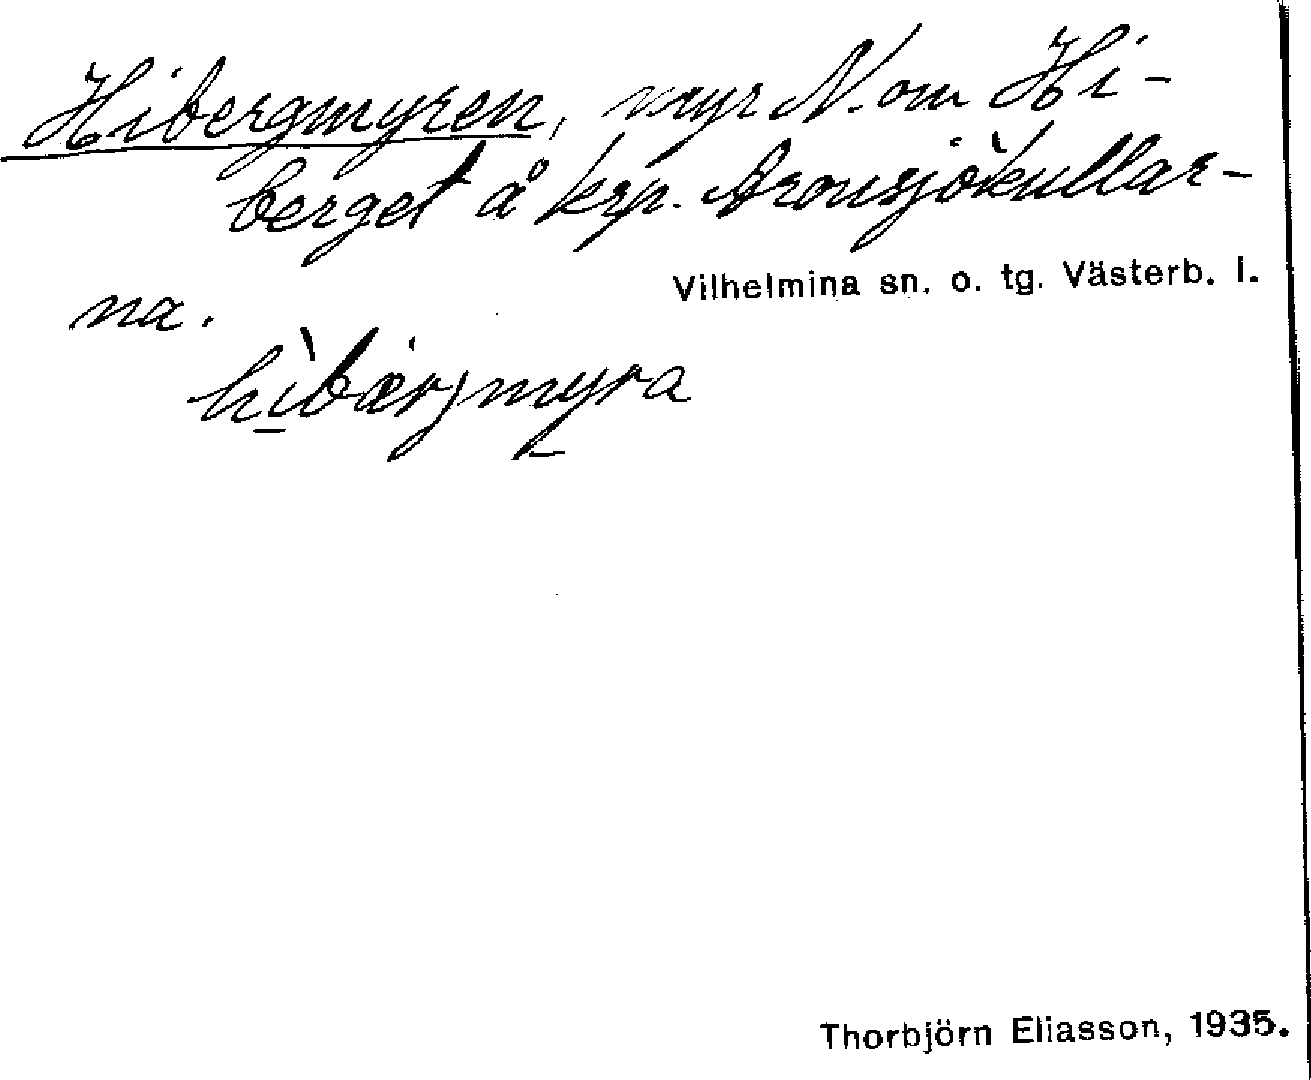 Hibergmyren, myr N. om Hi-
berget å krp. Aronsjökullar-
na.
Vilhelmina sn. o. tg. Västerb. l.
hìbærjmyra
Thorbjörn Eliasson, 1935.